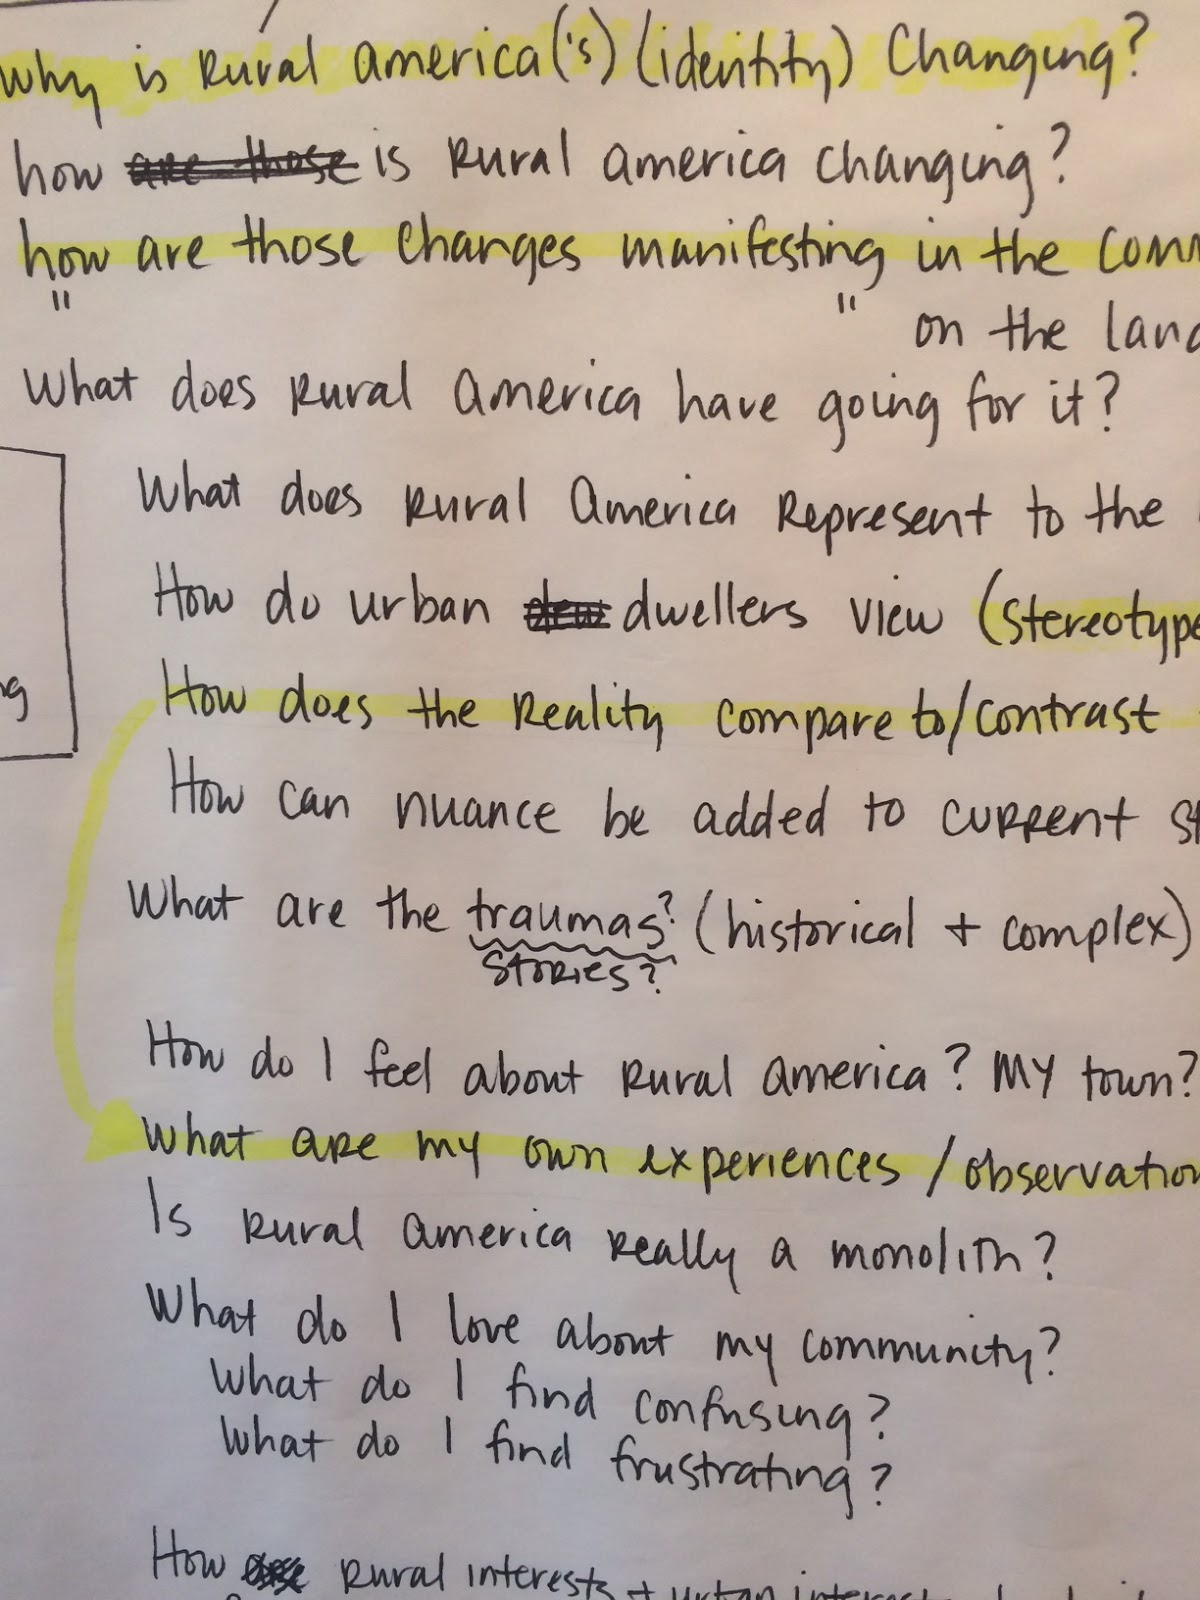 Why is Rural america('s) (identity) Changing?
how are those is Rural america changing?
how are those changes manifesting in the comm
" " on the land
What does Rural America have going for it?
What does Rural America Represent to the
How do urban dwellers view (stereotype
How does the Reality compare to/contrast
ng
How can nuance be added to current st
What are the traumas? (historical + complex)
Stories?
How do I feel about Rural america? MY town?
What are my own experiences / observation
Is Rural america Really a monolith?
What do I love about my community?
What do I find confusing?
What do I find frustrating?
How Rural interests + urban